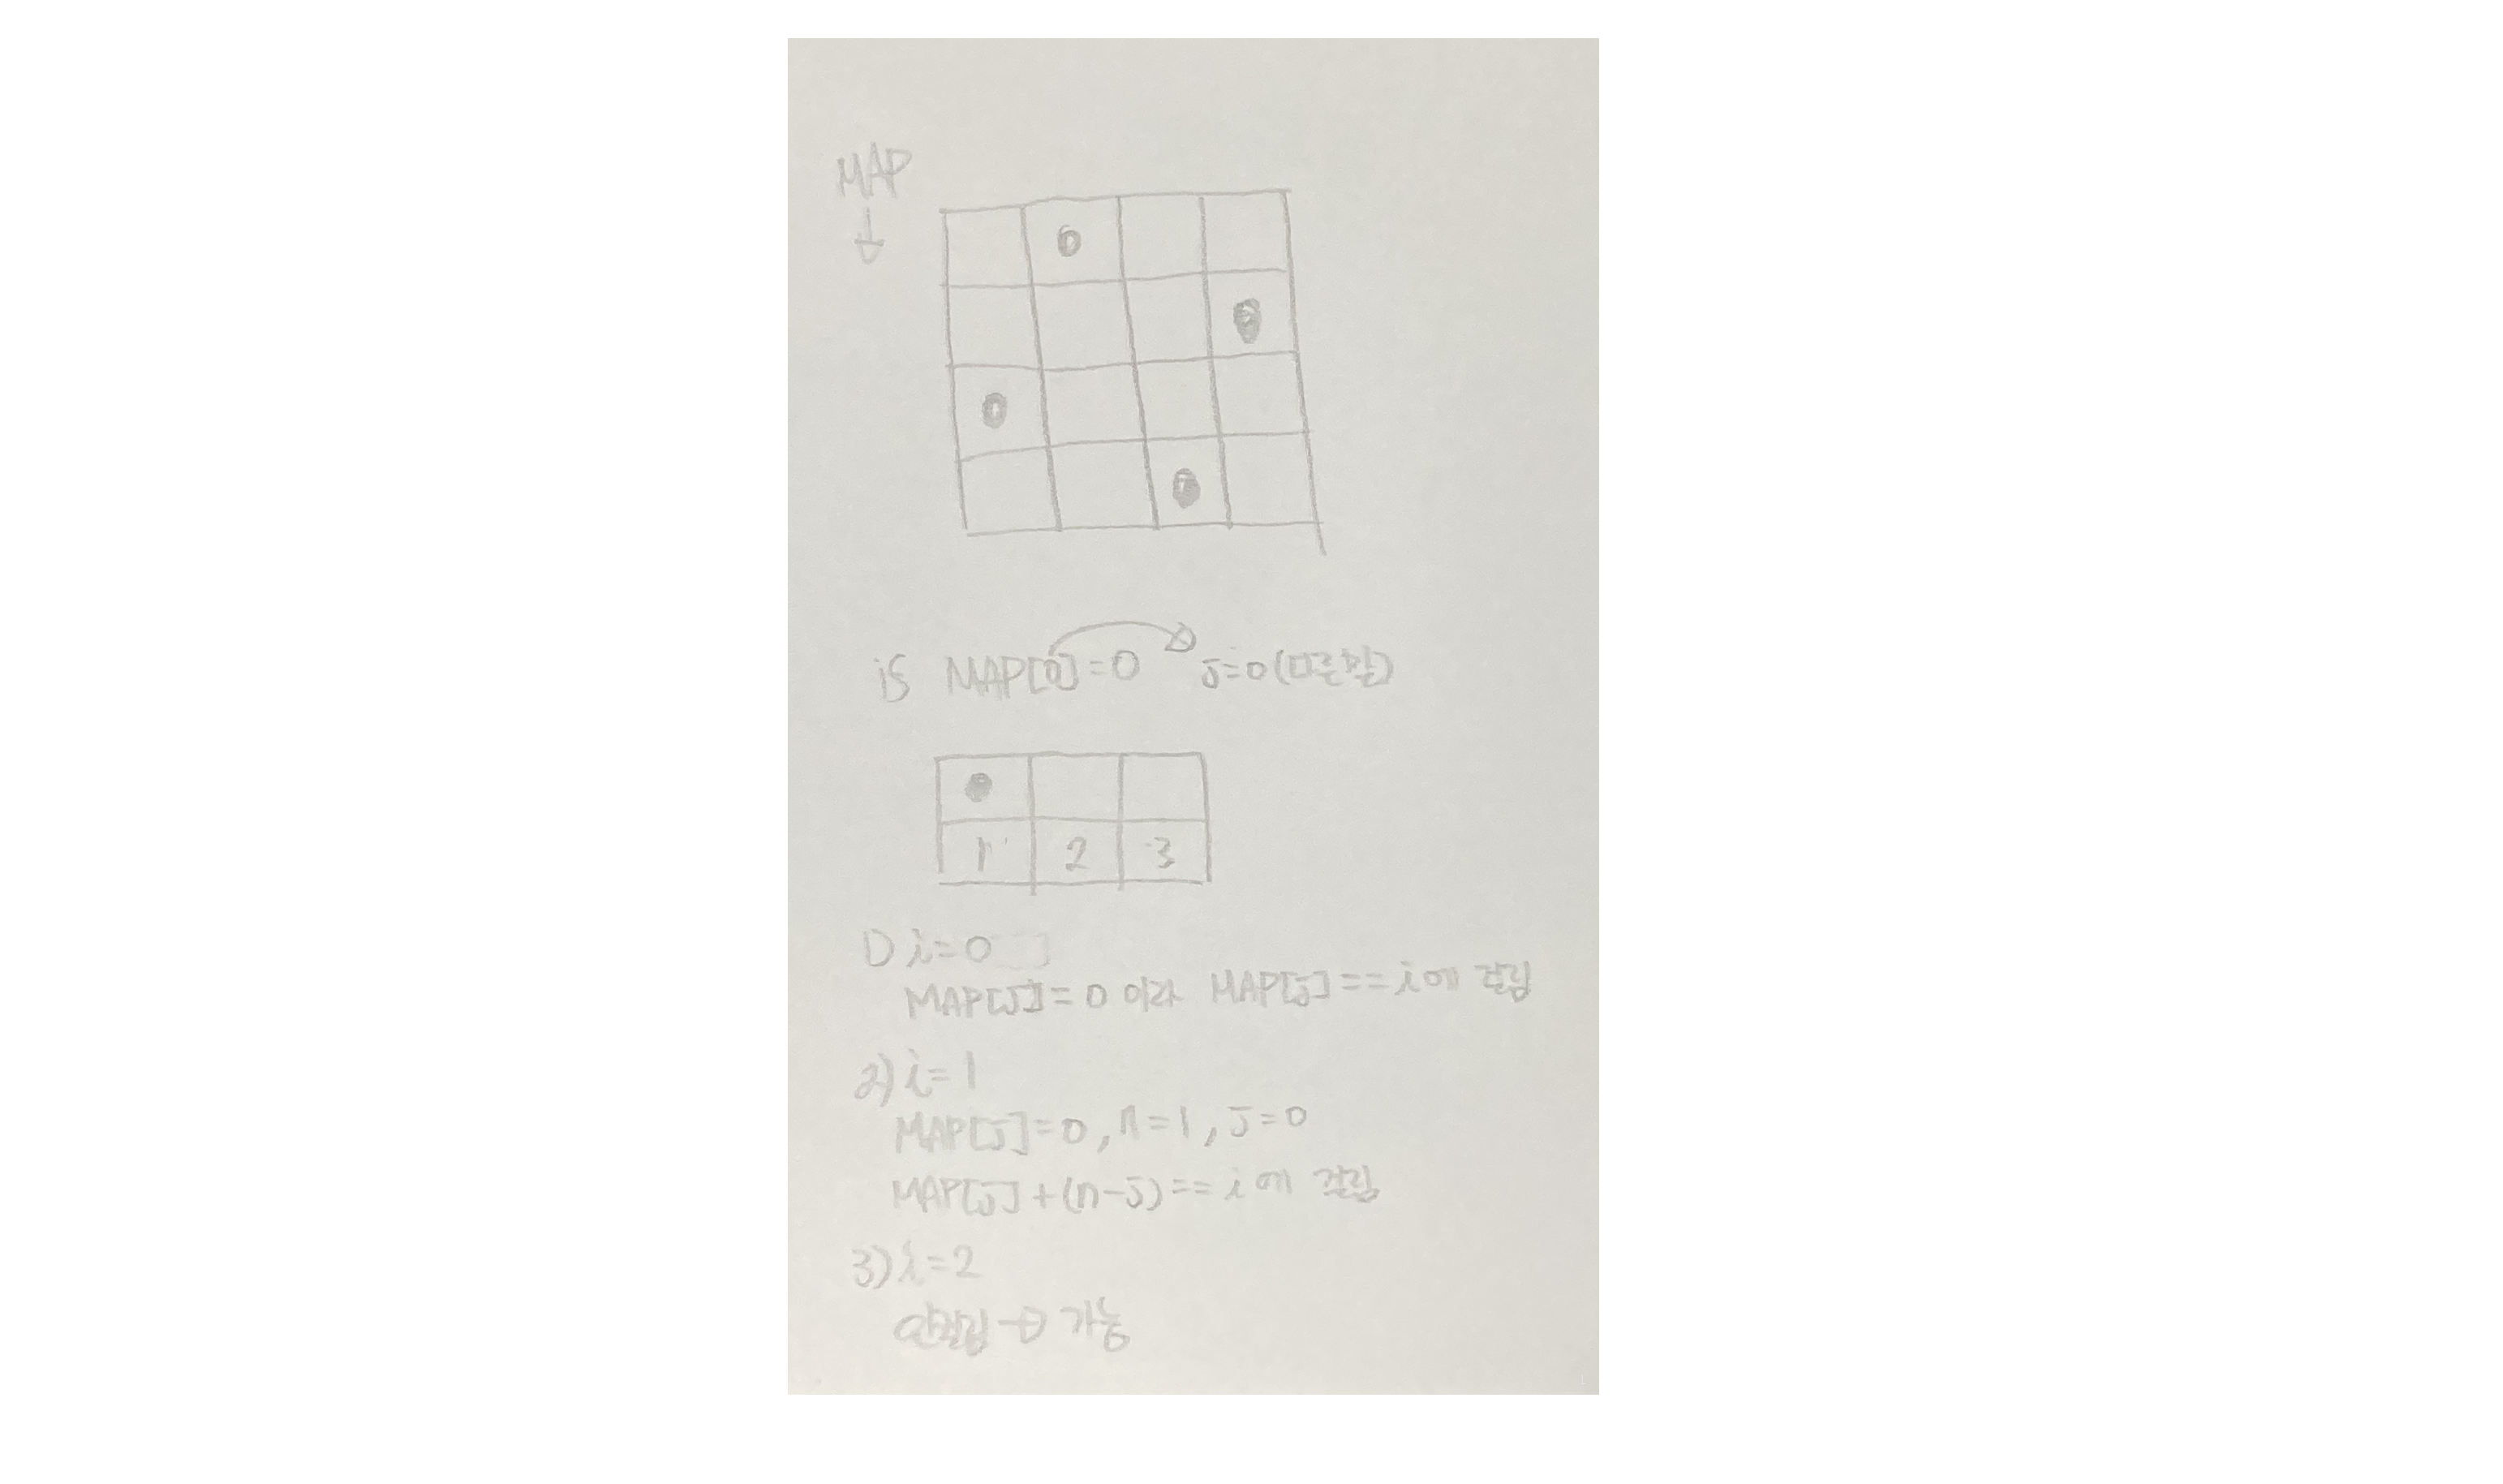 MAP
if MAP[0]=0 j=0(마로찾)
1 2 3
1) i=0
MAP[j]=0 이라 MAP[j]==i에 걸림
2) i=1
MAP[j]=0, n=1, j=0
MAP[j]+(n-j)==i에 걸림
3) i=2
안걸림 → 가능